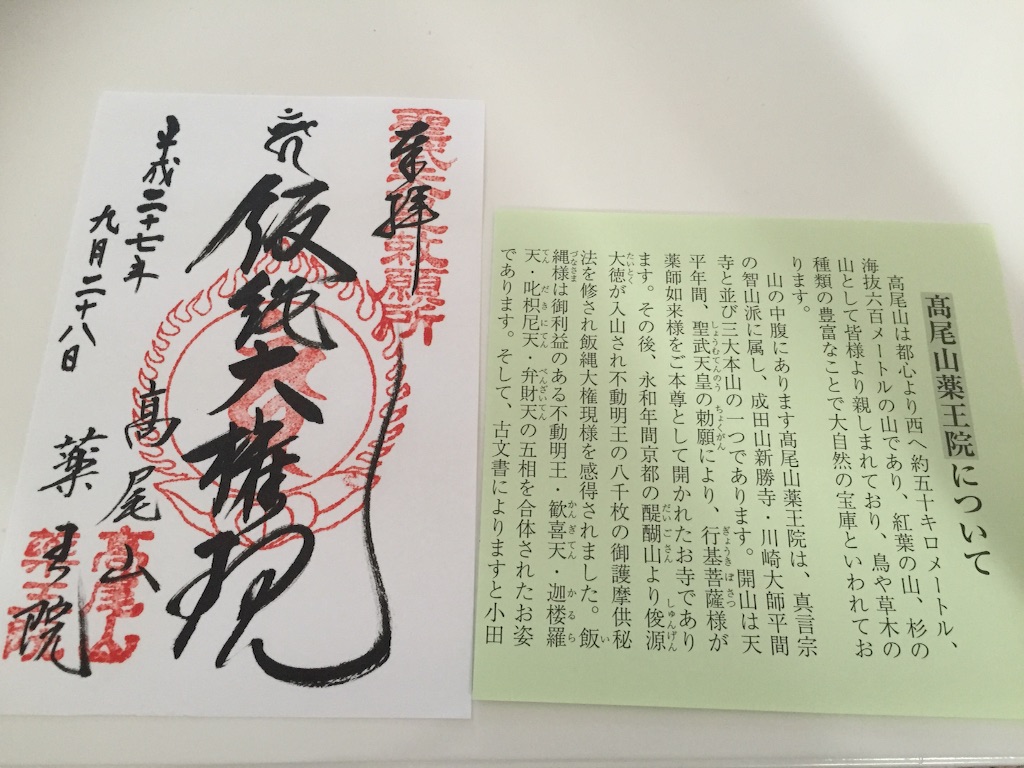 奉拝
飯縄大権現
高尾山
薬王院
平成二十七年
九月二十八日
高尾山
薬王院
髙尾山薬王院について
高尾山は都心より西へ約五十キロメートル、
海抜六百メートルの山であり、紅葉の山、杉の
山として皆様より親しまれており、鳥や草木の
種類の豊富なことで大自然の宝庫といわれてお
ります。
山の中腹にあります髙尾山薬王院は、真言宗
の智山派に属し、成田山新勝寺・川崎大師平間
寺と並び三大本山の一つであります。開山は天
平年間、聖武天皇の勅願により、行基菩薩様が
薬師如来様をご本尊として開かれたお寺であり
ます。その後、永和年間京都の醍醐山より俊源
大徳が入山され不動明王の八千枚の御護摩供秘
法を修され飯縄大権現様を感得されました。飯
縄様は御利益のある不動明王・歓喜天・迦楼羅
天・叱枳尼天・弁財天の五相を合体されたお姿
であります。そして、古文書によりますと小田